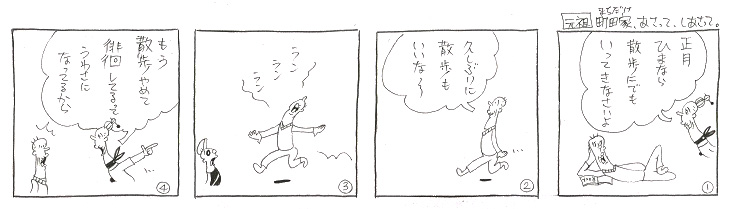 元祖 町田家、あさって、しあさって。
まちだけ
正月
ひまなら
散歩にでも
いってきなさいよ
①
久しぶりに
散歩も
いいな〜
②
ラン
ラン
ラン
③
もう
散歩やめて
徘徊してるって
うわさに
なってるから
④